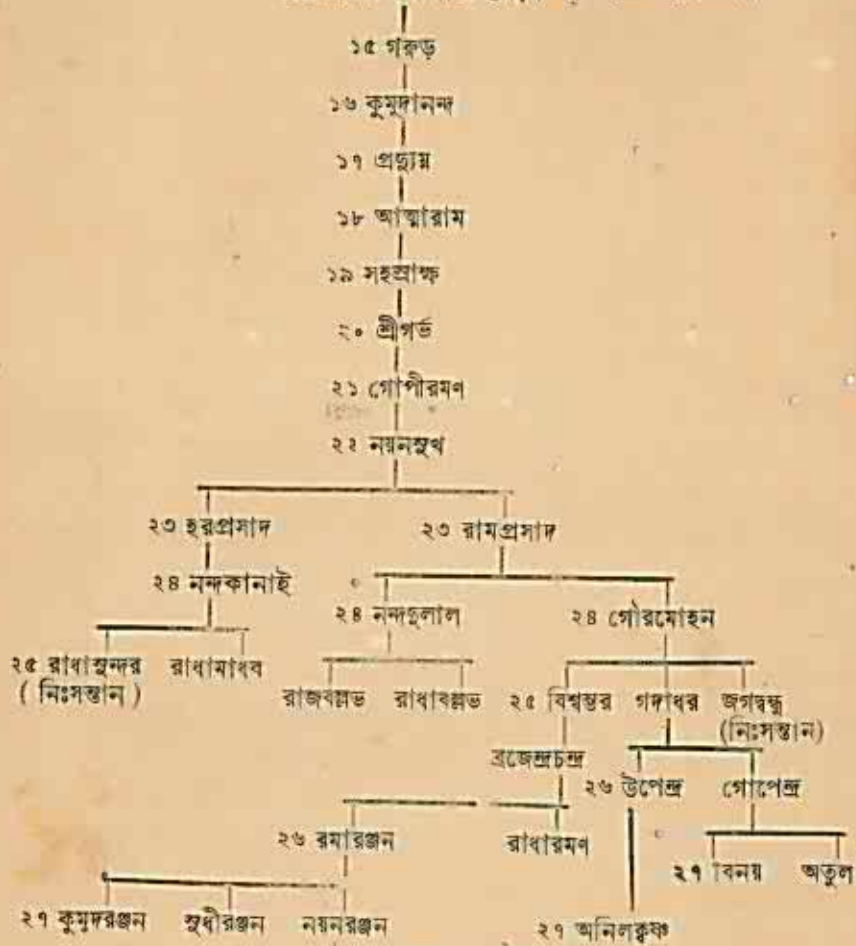 ১৫ গরুড়
১৬ কুমুদানন্দ
১৭ প্রদ্যুম্ন
১৮ আত্মারাম
১৯ সহস্রাক্ষ
২০ শ্রীগর্ভ
২১ গোপীরমণ
২২ নয়নসুখ
২৩ হরপ্রসাদ ২৩ রামপ্রসাদ
২৪ নন্দকানাই
২৪ নন্দদুলাল ২৪ গৌরমোহন
২৫ রাধাসুন্দর রাধামাধব
( নিঃসন্তান )
রাজবল্লভ রাধাবল্লভ ২৫ বিশ্বম্ভর গদাধর জগদ্বন্ধু
(নিঃসন্তান)
ব্রজেন্দ্রচন্দ্র
২৬ উপেন্দ্র গোপেন্দ্র
২৬ রমারঞ্জন রাধারমণ
২৭ বিনয় অতুল
২৭ কুমুদরঞ্জন সুধীরঞ্জন নয়নরঞ্জন ২৭ অনিলকৃষ্ণ